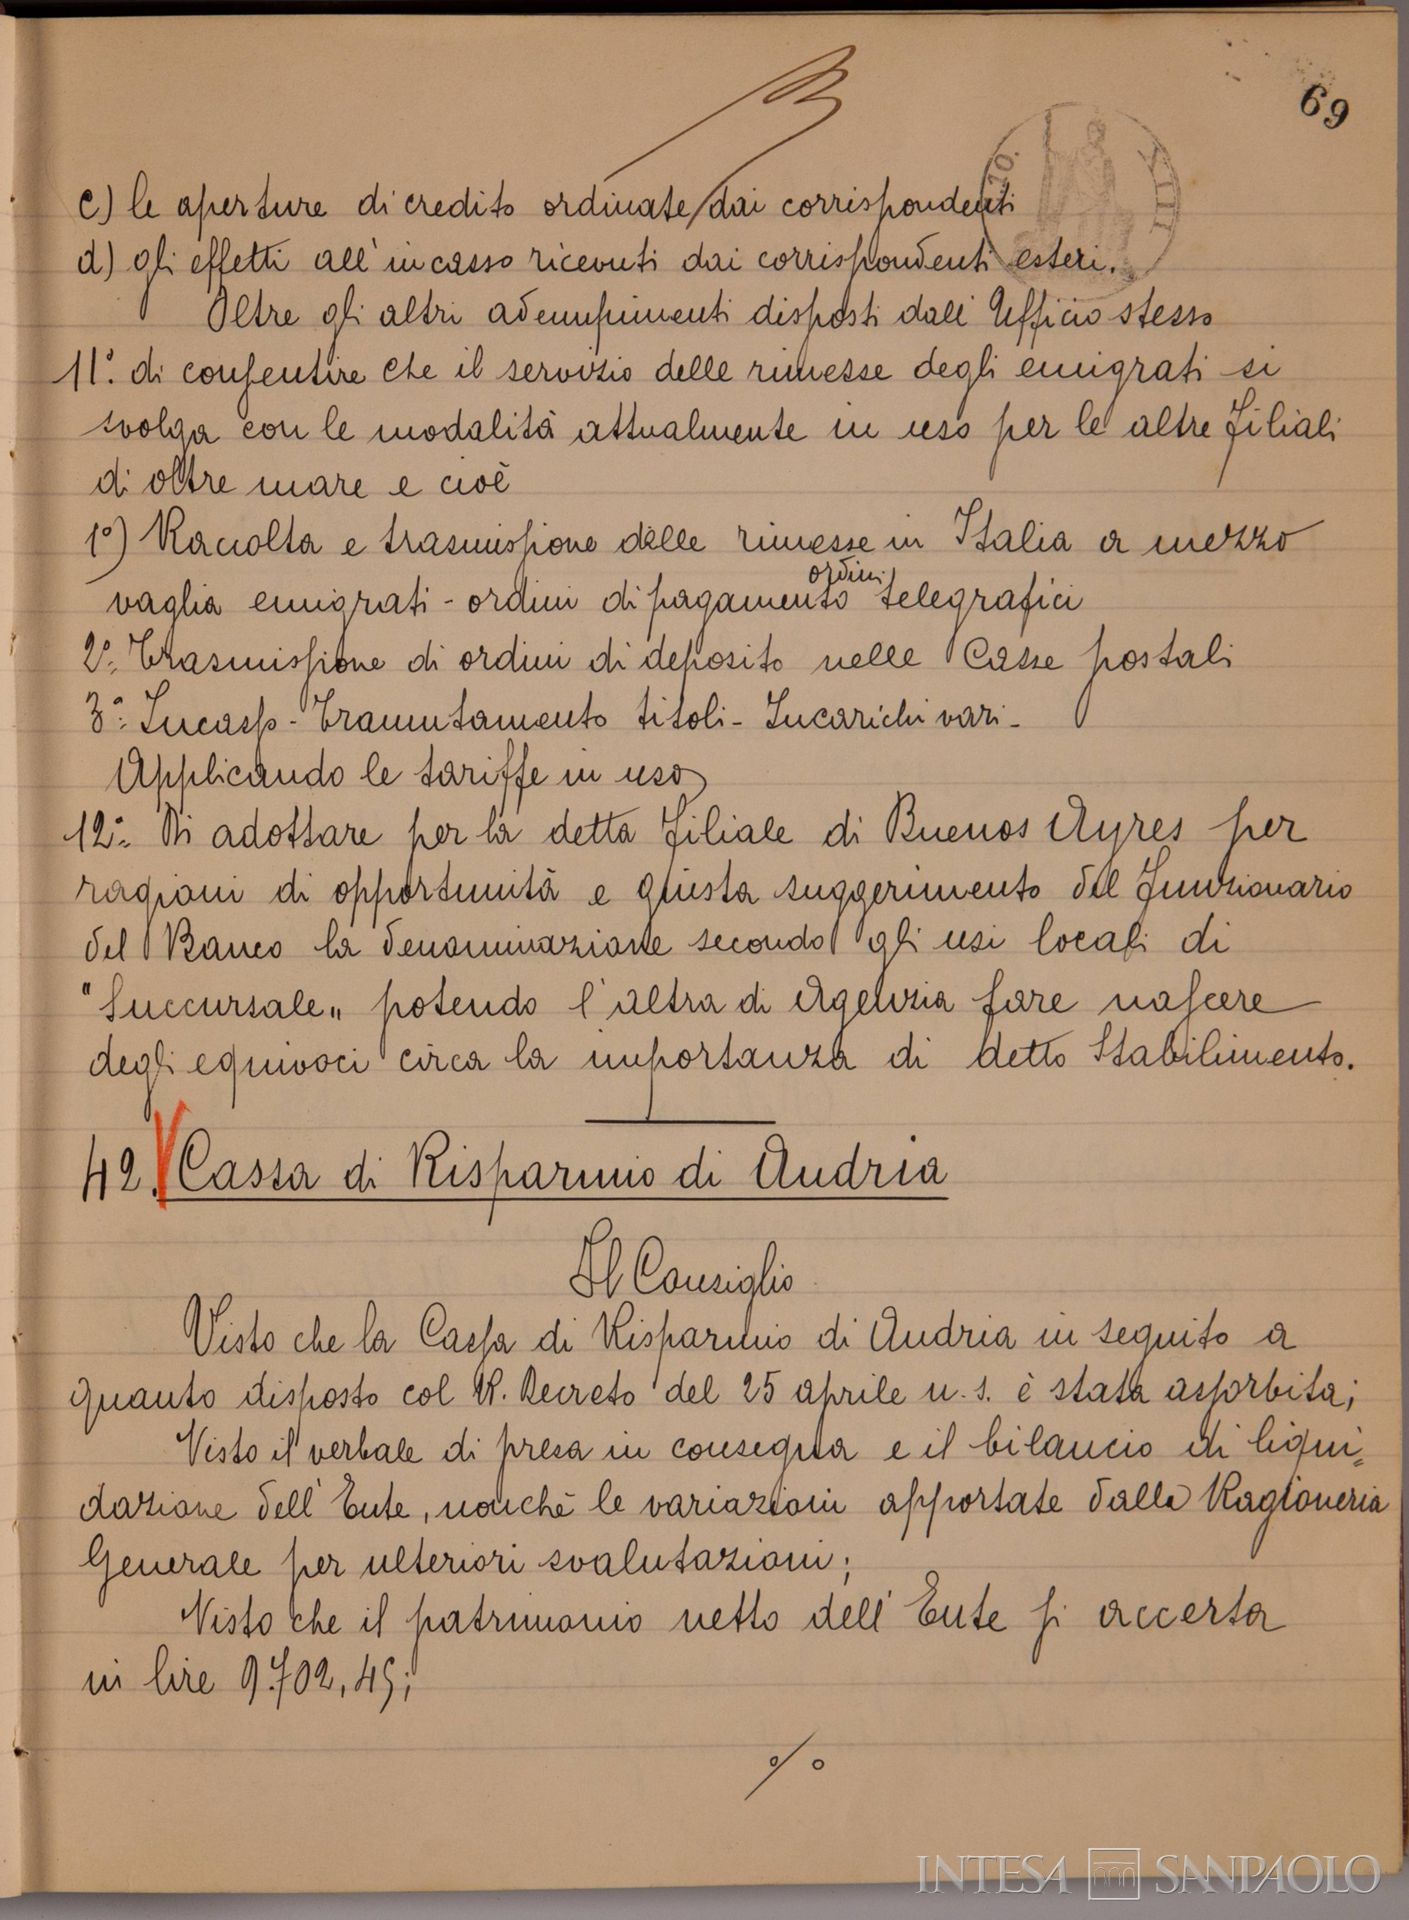 69
c) le aperture di credito ordinate dai corrispondenti
d) gli effetti all'incasso ricevuti dai corrispondenti esteri.
Oltre gli altri adempimenti disposti dall'Ufficio stesso
11°. di consentire che il servizio delle rimesse degli emigrati si
svolga con le modalità attualmente in uso per le altre filiali
di oltre mare e cioè
1°) Raccolta e trasmissione delle rimesse in Italia a mezzo
vaglia emigrati - ordini di pagamento ordini telegrafici
2°. Trasmissione di ordini di deposito nelle Casse postali
3°. Incasso - Tramutamento titoli - Incarichi vari -
Applicando le tariffe in uso
12°. Di adottare per la detta filiale di Buenos Ayres per
ragioni di opportunità e giusta suggerimento del funzionario
del Banco la denominazione secondo gli usi locali di
"Succursale" potendo l'altra di Agenzia fare nascere
degli equivoci circa la importanza di detto Stabilimento.
42. Cassa di Risparmio di Andria
Il Consiglio
Visto che la Cassa di Risparmio di Andria in seguito a
quanto disposto col R. Decreto del 25 aprile u. s. è stata assorbita;
Visto il verbale di presa in consegna e il bilancio di liqui=
dazione dell'Ente, nonchè le variazioni apportate dalla Ragioneria
Generale per ulteriori svalutazioni;
Visto che il patrimonio netto dell'Ente si accerta
in lire 9.702,45;
%
INTESA SANPAOLO